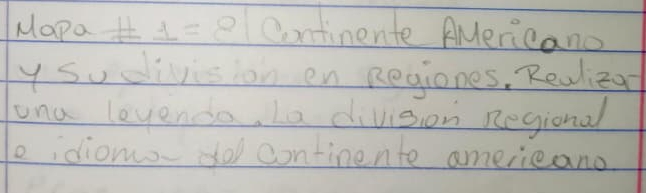 Mapa # 1 = el Continente AMericano
y su division en Regiones. Realiza
una leyenda. La division Regional
e idioma del continente americano